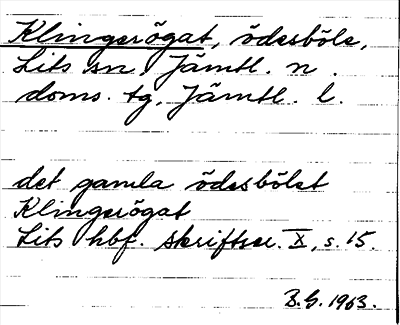 Klingerögat, ödesböle,
Lits sn, Jämtl. n.
doms. tg, Jämtl. l.
det gamla ödesbölet
Klingerögat
Lits hbf. skriftser. X, s. 15.
B.G. 1963.